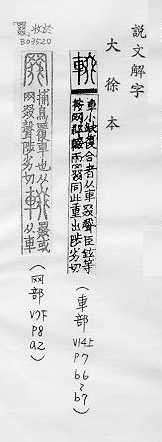 說文解字
大徐本
車小缺復合者从車叕聲臣鉉等
按网部輟與罬同此重出陟劣切
(車部 V14上 P7 b6~b7)
收於
B03520
捕鳥覆車也从
网叕聲陟劣切
罬或
从車
(网部 V7下 P8 a2)